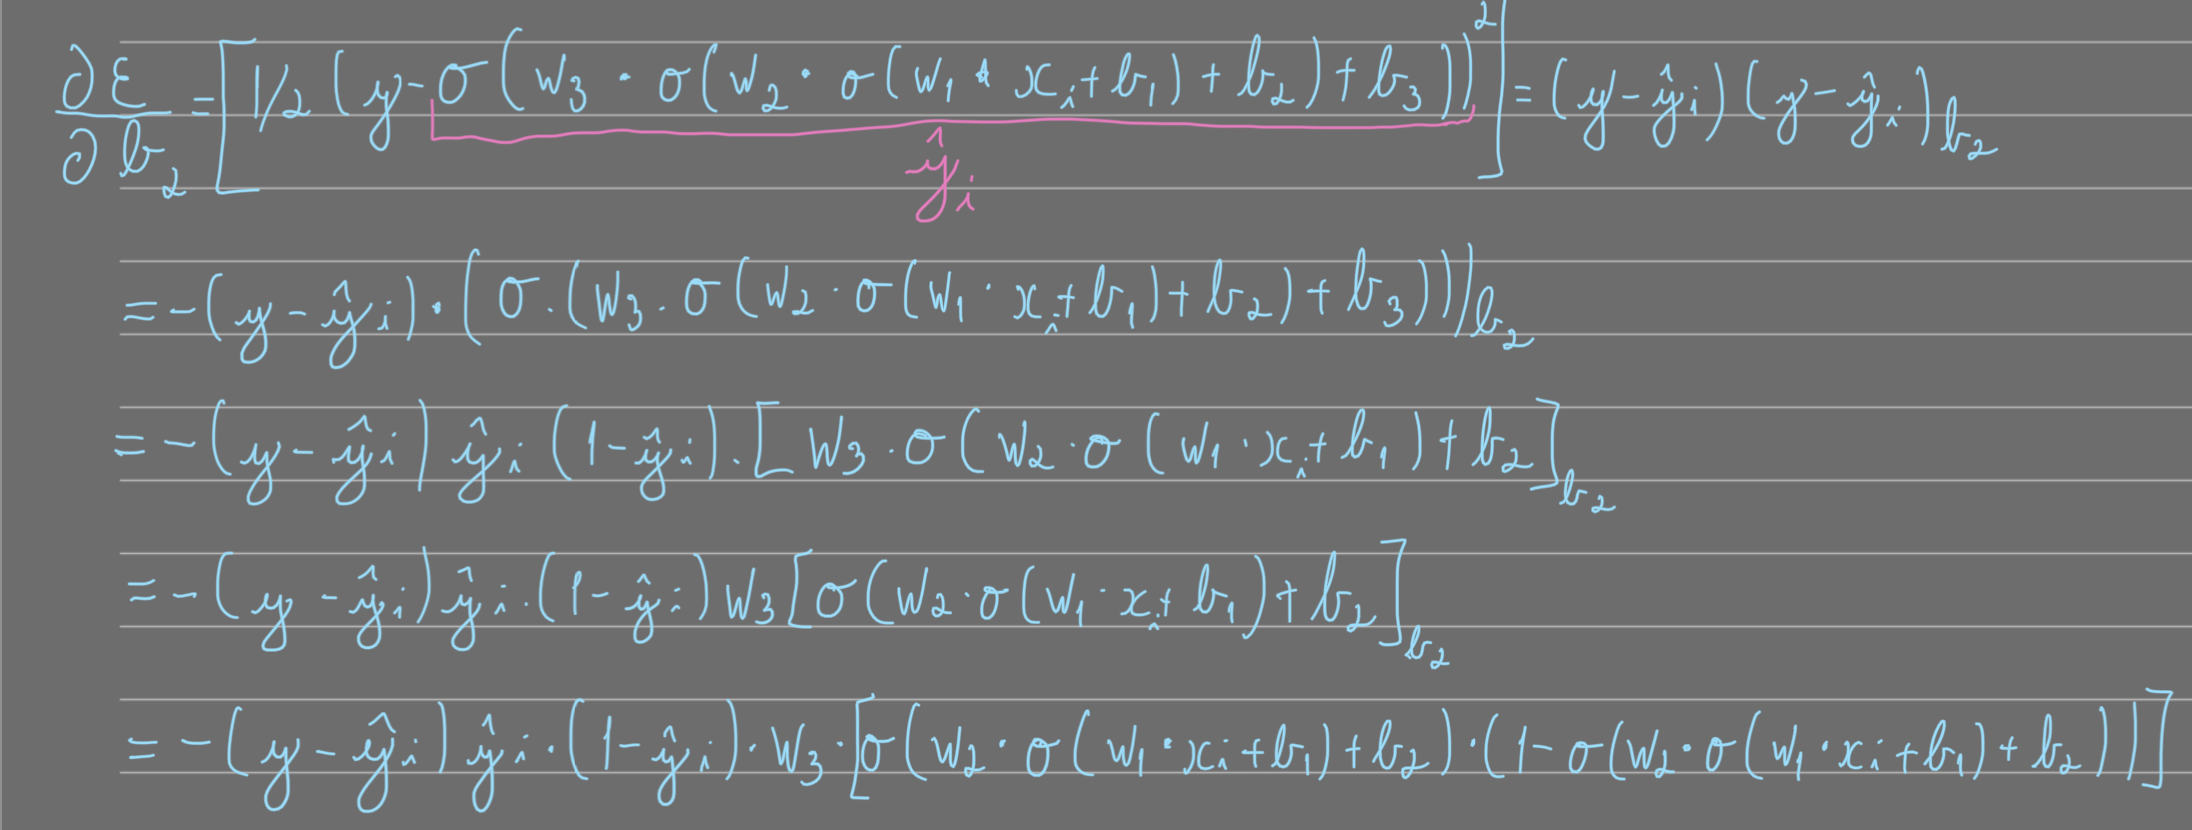 ∂E/∂b₂ = [1/2 (y - σ(w₃ · σ(w₂ · σ(w₁ · xᵢ + b₁) + b₂) + b₃))²] = (y - ŷᵢ)(y - ŷᵢ)b₂
ŷᵢ
= -(y - ŷᵢ) · (σ · (w₃ · σ(w₂ · σ(w₁ · xᵢ + b₁) + b₂) + b₃)))b₂
= -(y - ŷᵢ) ŷᵢ (1 - ŷᵢ) · [w₃ · σ(w₂ · σ(w₁ · xᵢ + b₁) + b₂]b₂
= -(y - ŷᵢ) ŷᵢ · (1 - ŷᵢ) w₃ [σ(w₂ · σ(w₁ · xᵢ + b₁) + b₂]b₂
= -(y - ŷᵢ) ŷᵢ · (1 - ŷᵢ) · w₃ · [σ(w₂ · σ(w₁ · xᵢ + b₁) + b₂) · (1 - σ(w₂ · σ(w₁ · xᵢ + b₁) + b₂))]